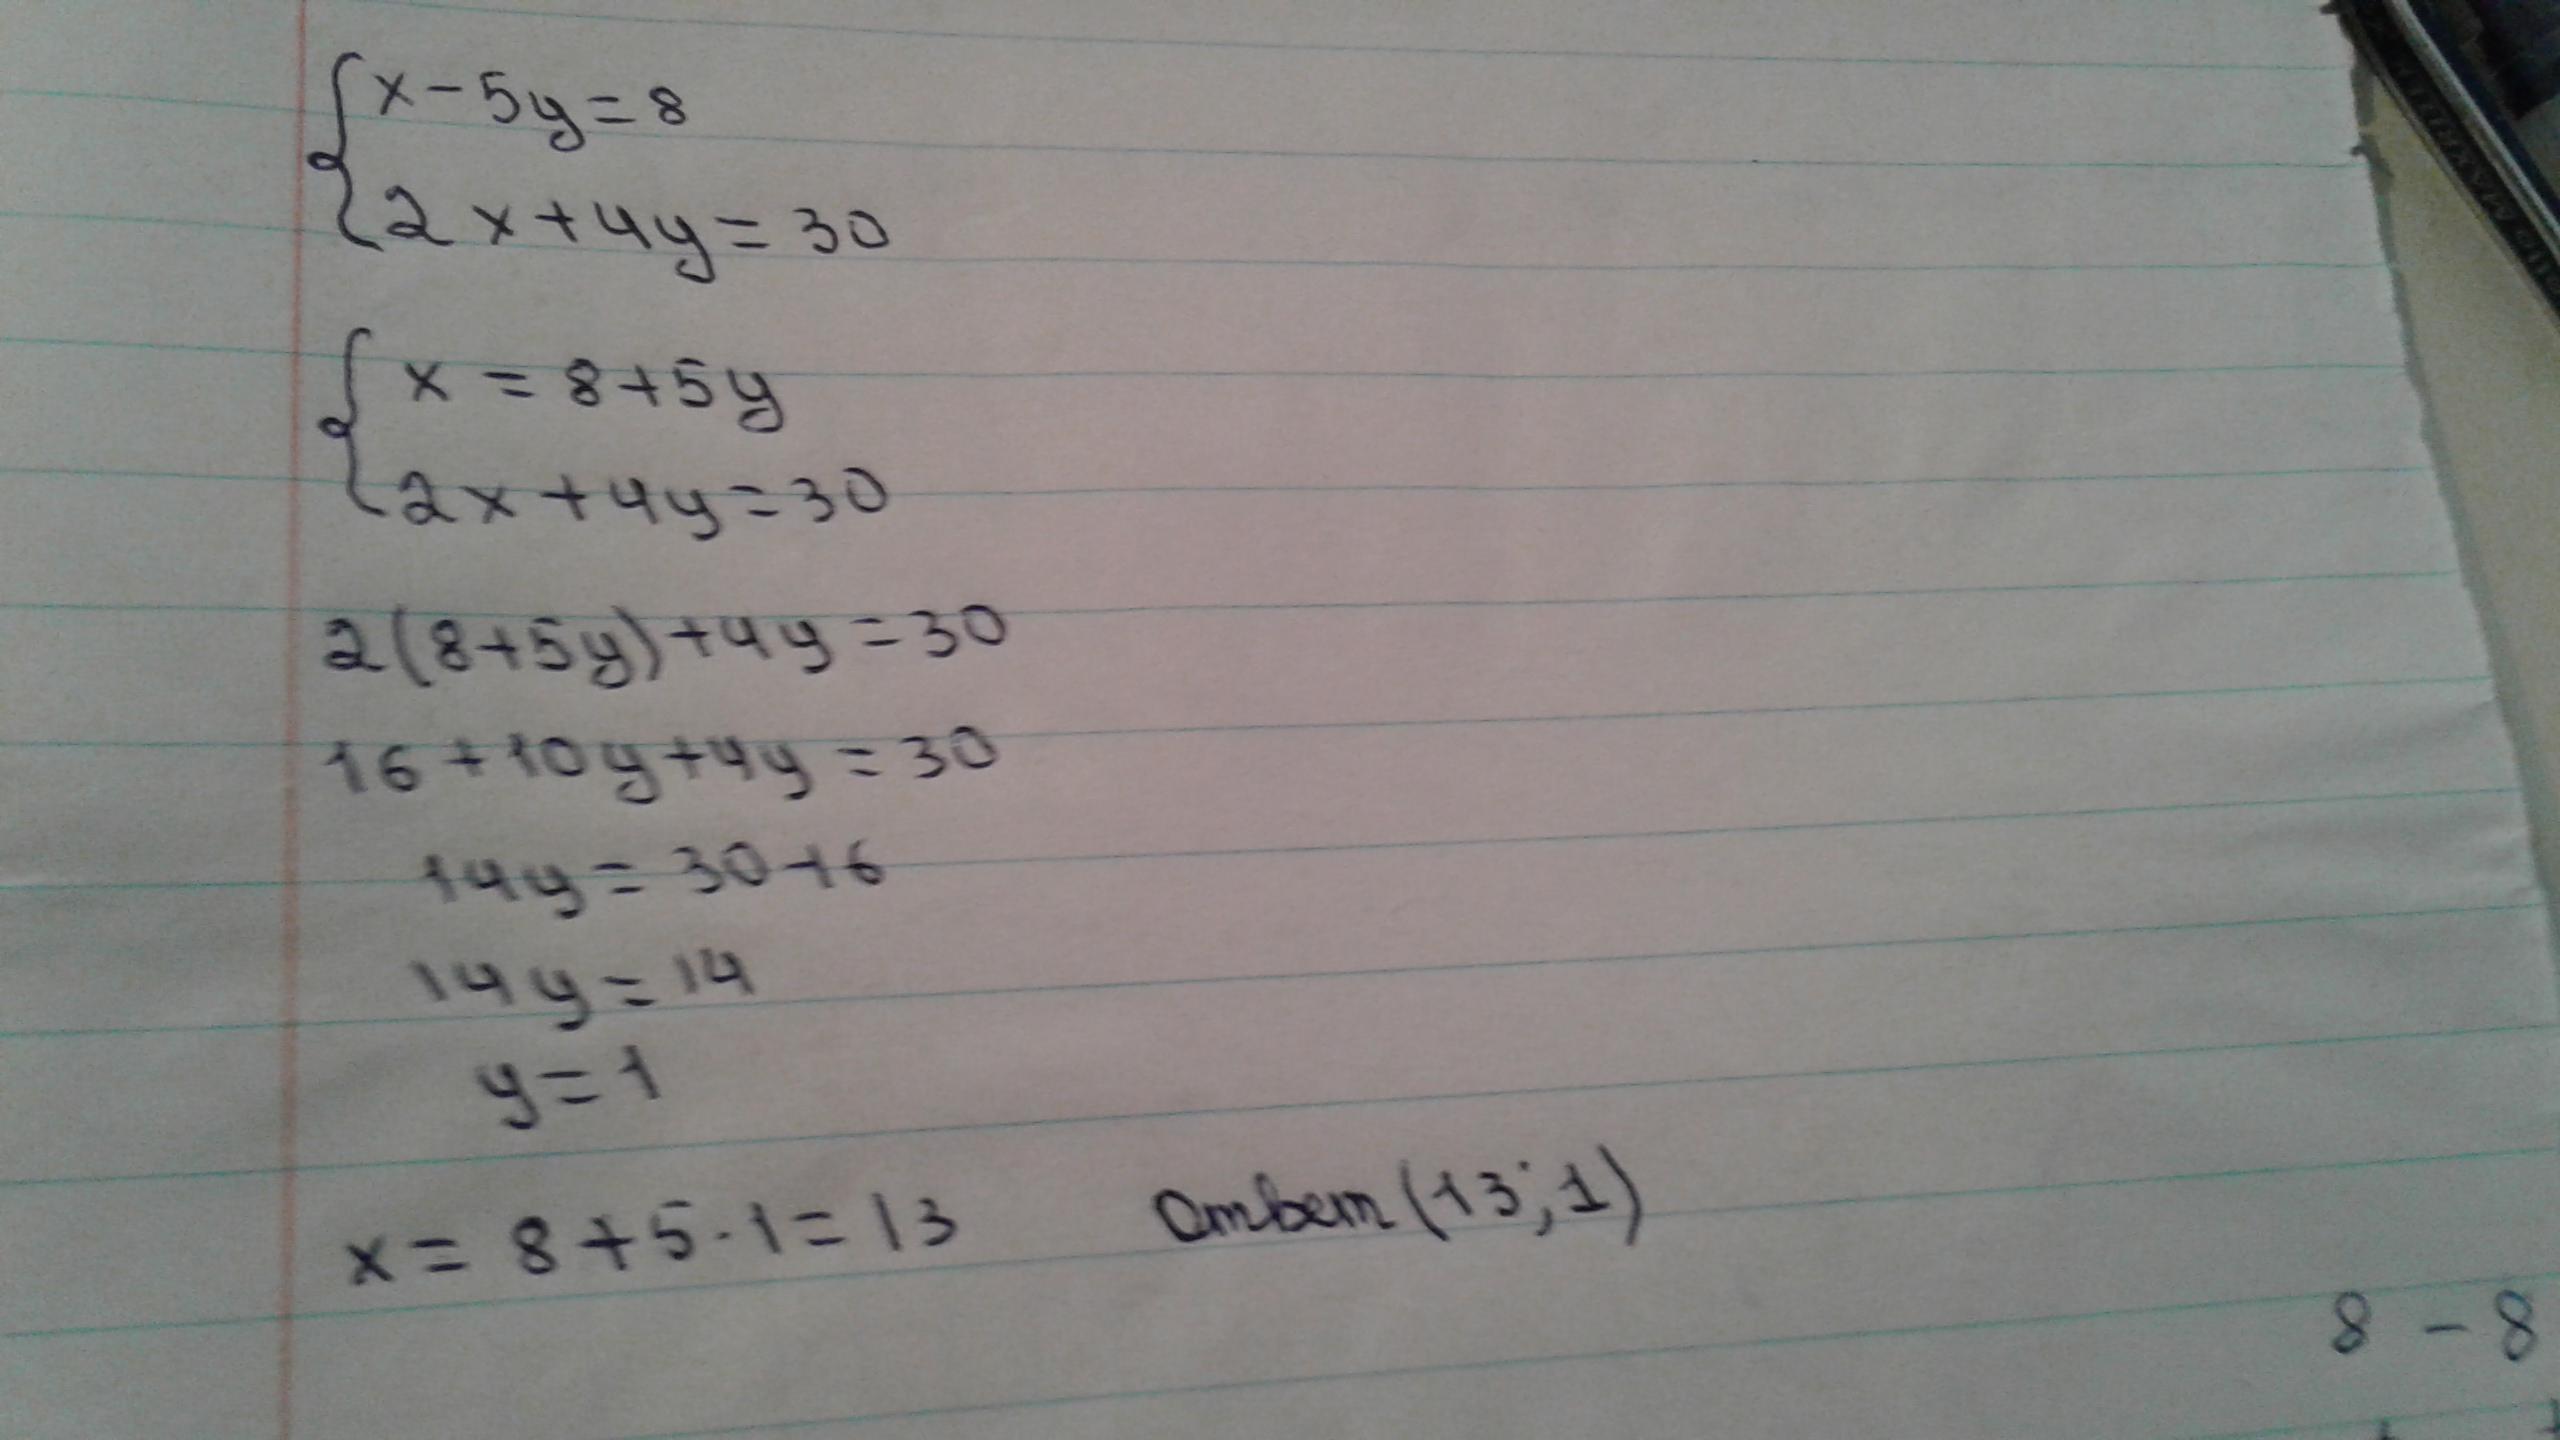 x-5y=8
2x+4y=30
x=8+5y
2x+4y=30
2(8+5y)+4y=30
16+10y+4y=30
14y=30-16
14y=14
y=1
x=8+5·1=13 Ответ (13;1)
8-8